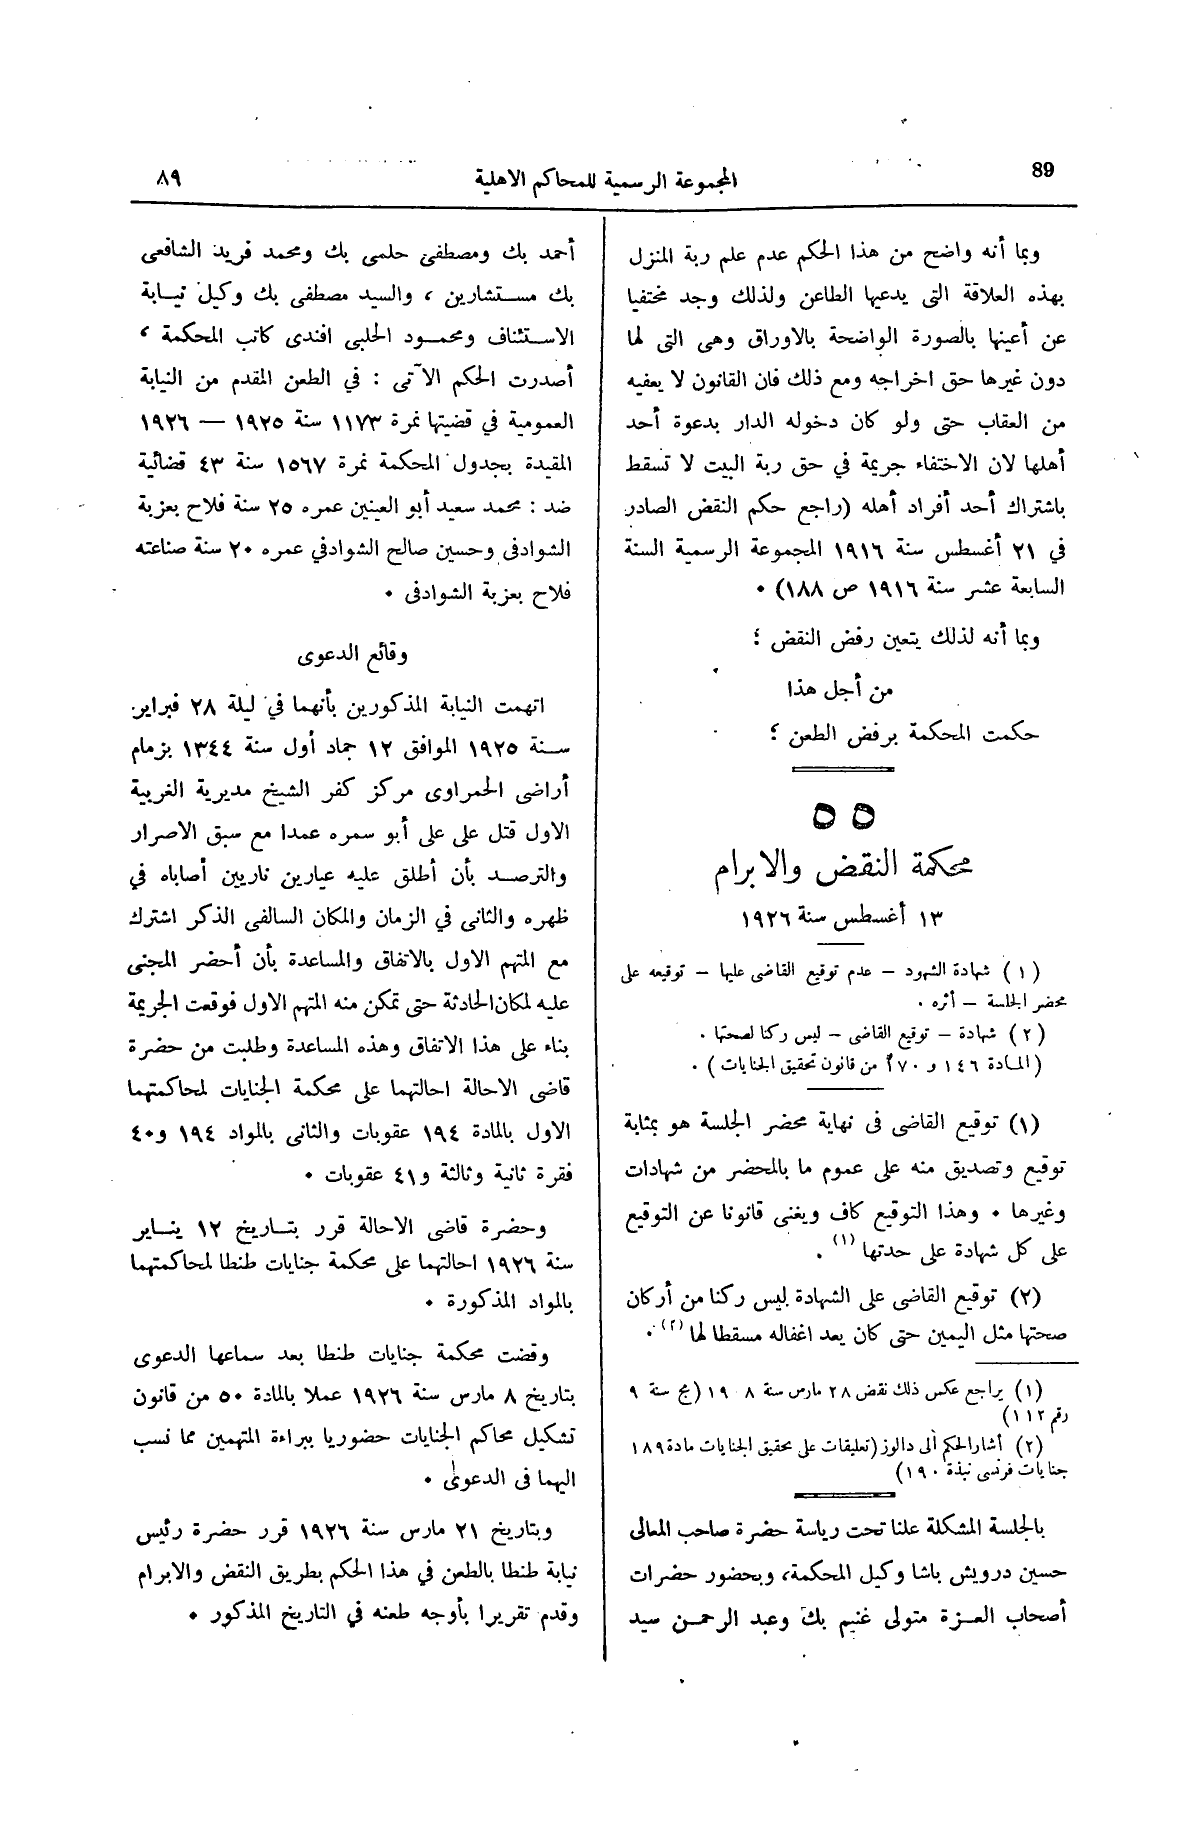 89
المجموعة الرسمية للمحاكم الاهلية
٨٩
وبما أنه واضح من هذا الحكم عدم علم ربة المنزل
بهذه العلاقة التى يدعيها الطاعن ولذلك وجد مختفيا
عن أعينها بالصورة الواضحة بالاوراق وهى التى لها
دون غيرها حق اخراجه ومع ذلك فان القانون لا يعفيه
من العقاب حتى ولو كان دخوله الدار بدعوة أحد
أهلها لان الاختفاء جريمة في حق ربة البيت لا تسقط
باشتراك أحد أفراد أهله (راجع حكم النقض الصادر
في ٢١ أغسطس سنة ١٩١٦ المجموعة الرسمية السنة
السابعة عشر سنة ١٩١٦ ص ١٨٨) ٠
وبما أنه لذلك يتعين رفض النقض ؛
من أجل هذا
حكمت المحكمة برفض الطعن ؛
٥٥
محكمة النقض والابرام
١٣ أغسطس سنة ١٩٢٦
(١) شهادة الشهود – عدم توقيع القاضى عليها – توقيعه على
محضر الجلسة – أثره ٠
(٢) شهادة – توقيع القاضى – ليس ركنا لصحتها ٠
(المادة ١٤٦ و ١٧٠ من قانون تحقيق الجنايات) ٠
(١) توقيع القاضى فى نهاية محضر الجلسة هو بمثابة
توقيع وتصديق منه على عموم ما بالمحضر من شهادات
وغيرها ٠ وهذا التوقيع كاف ويغنى قانونا عن التوقيع
على كل شهادة على حدتها (١) ٠
(٢) توقيع القاضى على الشهادة ليس ركنا من أركان
صحتها مثل اليمين حتى كان يعد اغفاله مسقطا لها (٢) ٠
(١) يراجع عكس ذلك نقض ٢٨ مارس سنة ١٩٠٨ (مج سنة ٩
رقم ١١٢)
(٢) أشار الحكم ألى دالوز (تعليقات على تحقيق الجنايات مادة ١٨٩
جنايات فرنسى نبذة ١٩٠)
بالجلسة المشكلة علنا تحت رياسة حضرة صاحب المعالى
حسين درويش باشا وكيل المحكمة، وبحضور حضرات
أصحاب العزة متولى غنيم بك وعبد الرحمن سيد
أحمد بك ومصطفى حلمى بك ومحمد فريد الشافعى
بك مستشارين ، والسيد مصطفى بك وكيل نيابة
الاستئناف ومحمود الحلبى افندى كاتب المحكمة ،
أصدرت الحكم الآتى : في الطعن المقدم من النيابة
العمومية في قضيتها نمرة ١١٧٣ سنة ١٩٢٥ — ١٩٢٦
المقيدة بجدول المحكمة نمرة ١٥٦٧ سنة ٤٣ قضائية
ضد : محمد سعيد أبو العينين عمره ٢٥ سنة فلاح بعزبة
الشوادفى وحسين صالح الشوادفي عمره ٢٠ سنة صناعته
فلاح بعزبة الشوادفى ٠
وقائع الدعوى
اتهمت النيابة المذكورين بأنهما في ليلة ٢٨ فبراير
سنة ١٩٢٥ الموافق ١٢ جماد أول سنة ١٣٤٤ بزمام
أراضى الحمراوى مركز كفر الشيخ مديرية الغربية
الاول قتل على على أبو سمره عمدا مع سبق الاصرار
والترصد بأن أطلق عليه عيارين ناريين أصاباه في
ظهره والثانى في الزمان والمكان السالفى الذكر اشترك
مع المتهم الاول بالاتفاق والمساعدة بأن أحضر المجنى
عليه لمكان الحادثة حتى تمكن منه المتهم الاول فوقعت الجريمة
بناء على هذا الاتفاق وهذه المساعدة وطلبت من حضرة
قاضى الاحالة احالتهما على محكمة الجنايات لمحاكمتهما
الاول بالمادة ١٩٤ عقوبات والثانى بالمواد ١٩٤ و٤٠
فقرة ثانية وثالثة و٤١ عقوبات ٠
وحضرة قاضى الاحالة قرر بتاريخ ١٢ يناير
سنة ١٩٢٦ احالتهما على محكمة جنايات طنطا لمحاكمتهما
بالمواد المذكورة ٠
وقضت محكمة جنايات طنطا بعد سماعها الدعوى
بتاريخ ٨ مارس سنة ١٩٢٦ عملا بالمادة ٥٠ من قانون
تشكيل محاكم الجنايات حضوريا ببراءة المتهمين مما نسب
اليهما فى الدعوى ٠
وبتاريخ ٢١ مارس سنة ١٩٢٦ قرر حضرة رئيس
نيابة طنطا بالطعن في هذا الحكم بطريق النقض والابرام
وقدم تقريرا بأوجه طعنه في التاريخ المذكور ٠